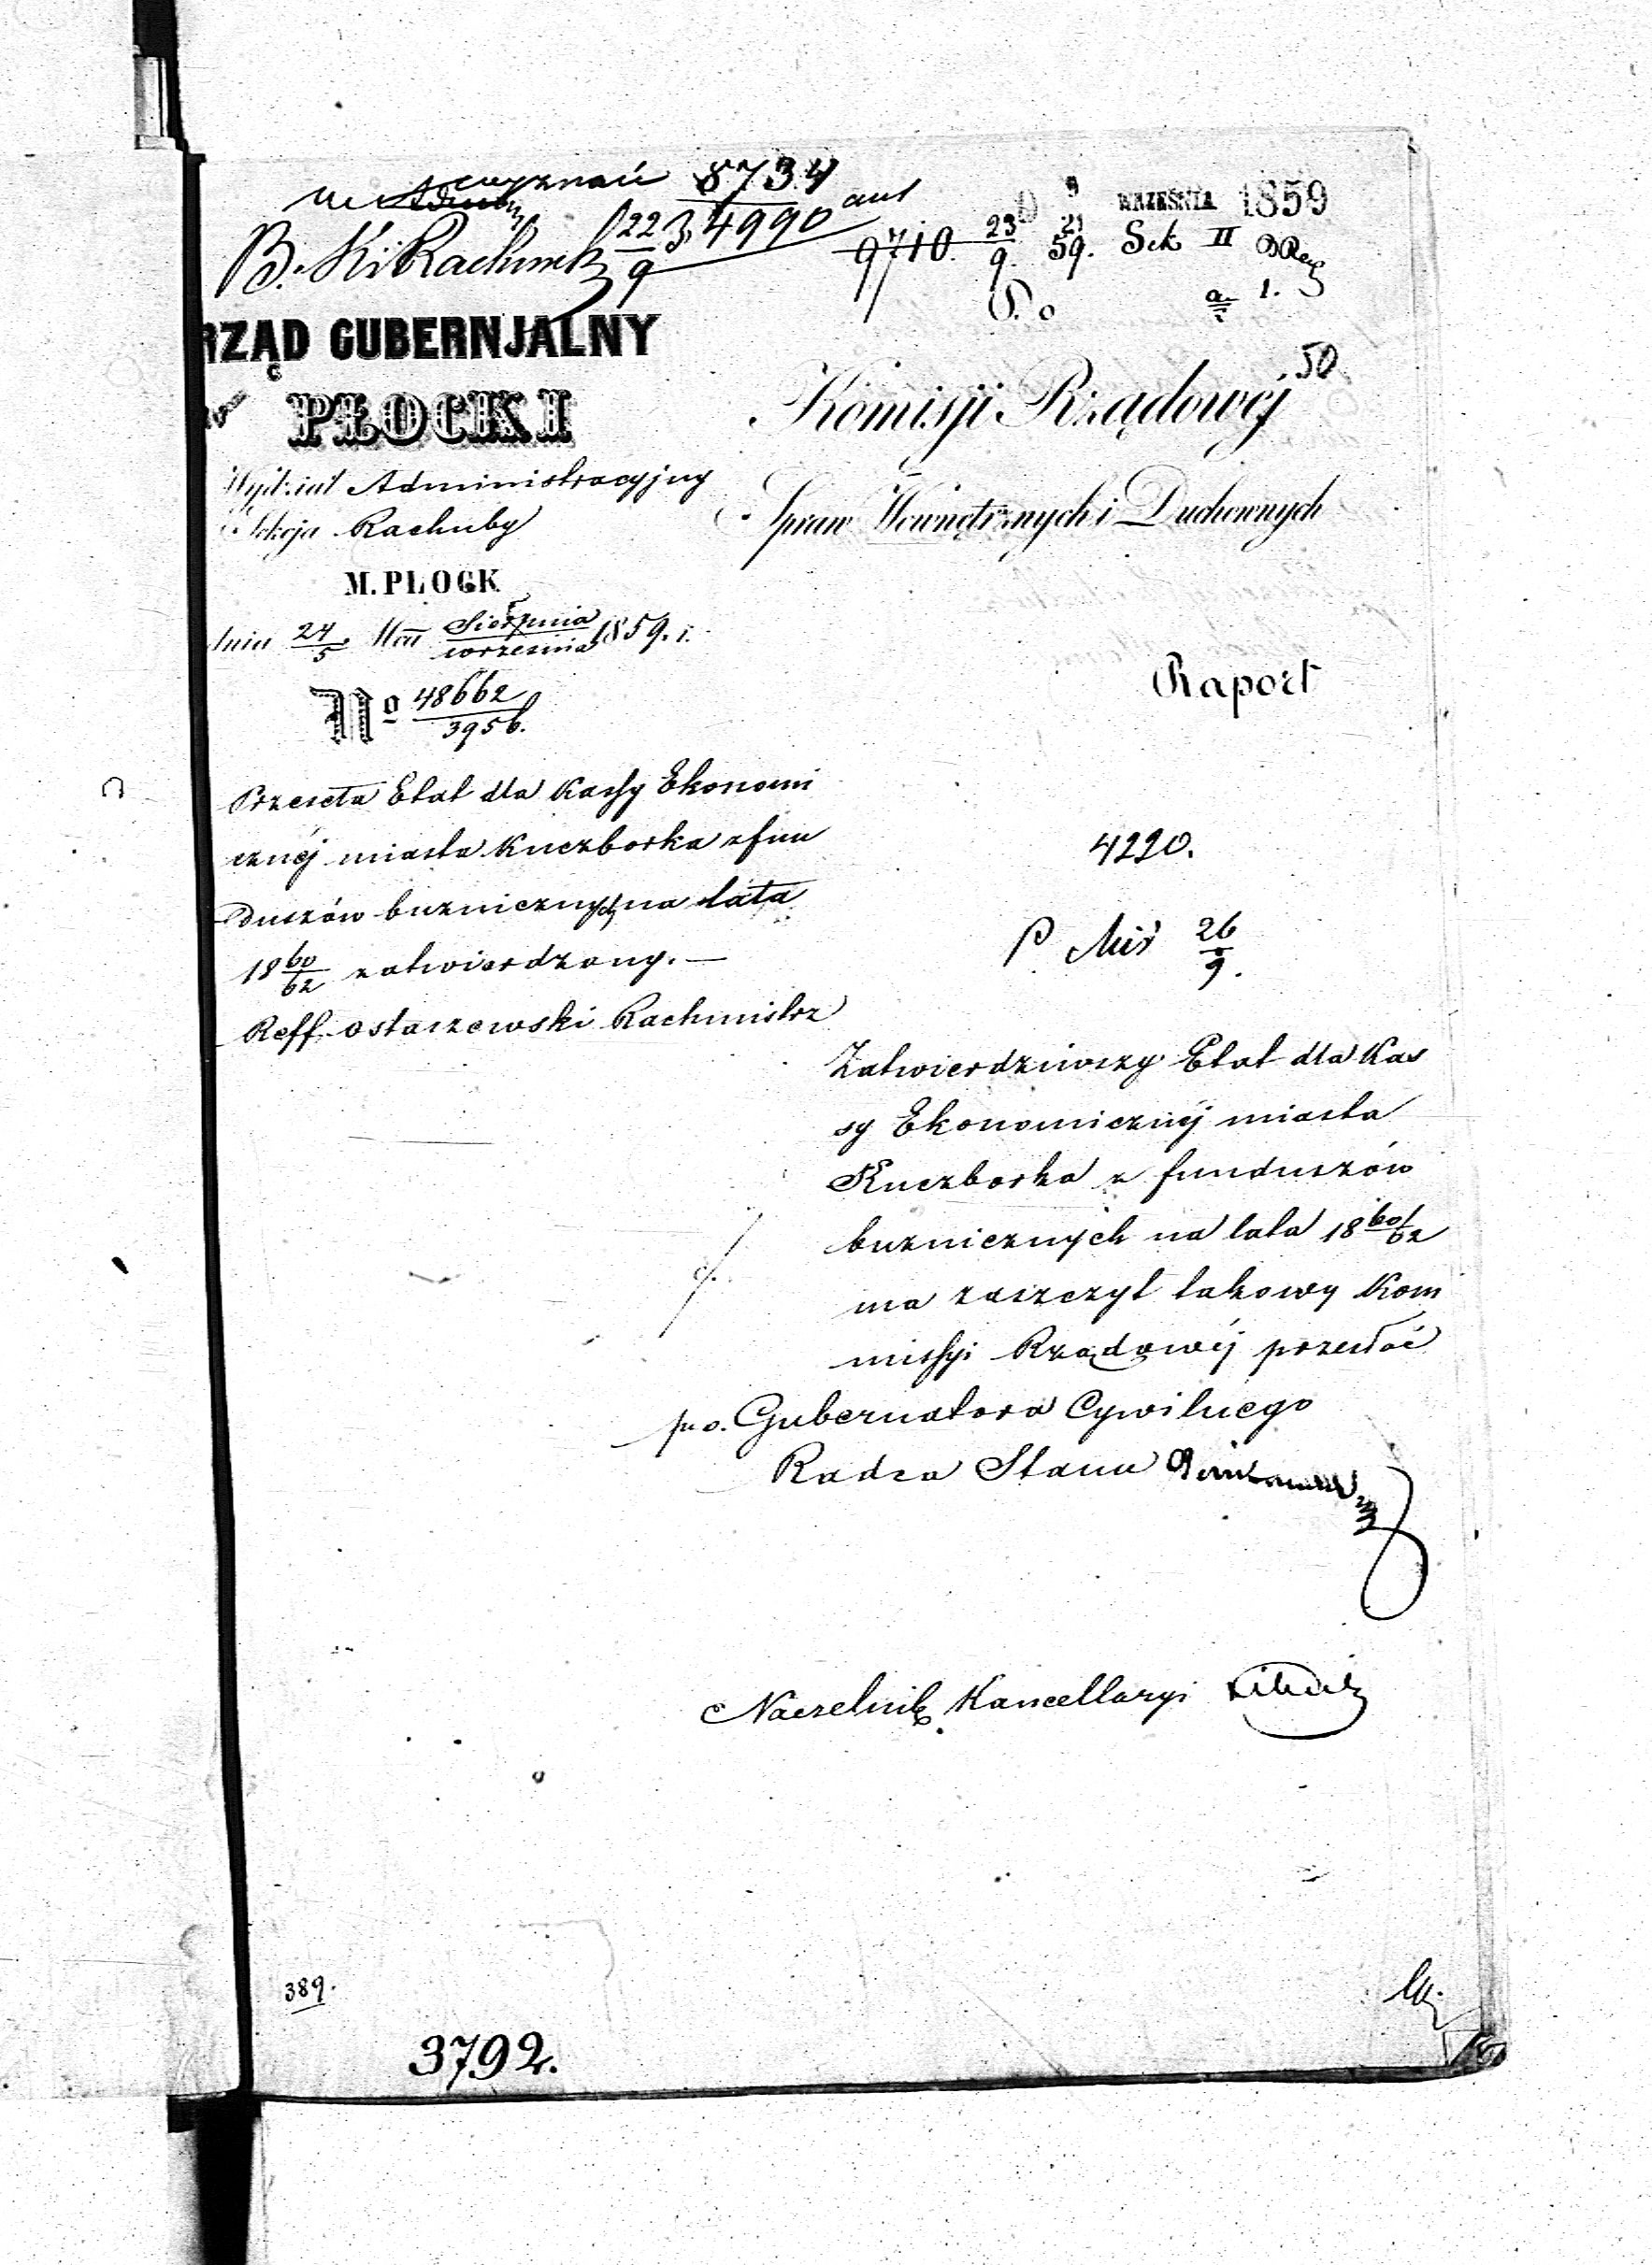 wyznań 8734
B. K. Rachunk 22/9 34990
9710. 23/9 59. Sek II
9 WRZEŚNIA 1859
50
RZĄD GUBERNJALNY
PŁOCKI
Wydział Administracyjny
Sekcja Rachuby
M. PŁOCK
dnia 24/5 Sierpnia/września 1859. r.
No 48662/3956.
Przeseła Etat dla Kassy Ekonomi
cznéj miasta Kuczborka z fun
duszów buznicznych na lata
18 60/62 zatwierdzony. —
Reff. Ostaszewski Rachmistrz
Komisji Rządowéj
Spraw Wewnętrznych i Duchownych
Raport
4220.
P 26/9.
Zatwierdziwszy Etat dla Kas
sy Ekonomicznéj miasta
Kuczborka z funduszów
buznicznych na lata 18 60/62
ma zaszczyt takowy Kom
missyi Rządowéj przesłać
p.o. Gubernatora Cywilnego
Radca Stanu
Naczelnik Kancellaryi
389.
3792.